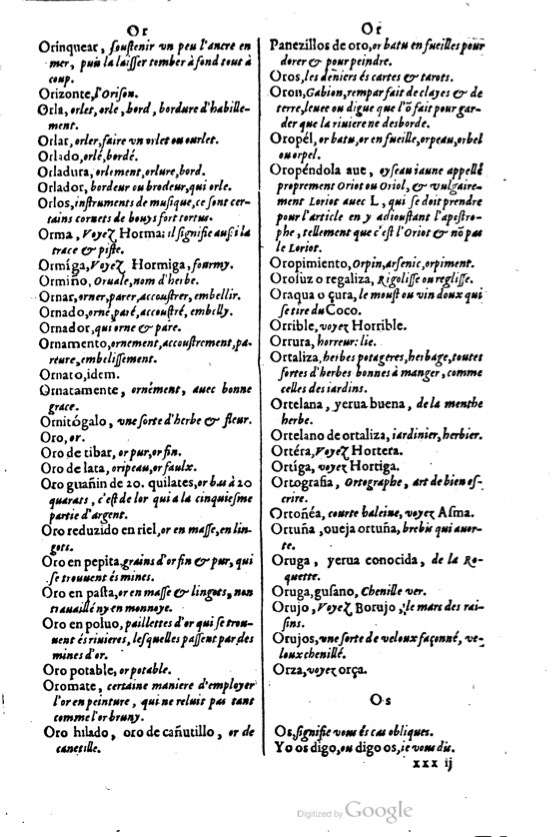 Or
Orinquear, ſouſtenir vn peu l'ancre en
mer, puis la laiſſer tomber à fond tout à
coup.
Orizonte, l'Oriſon.
Orla, orlet, orle, bord, bordure d'habille-
ment.
Orlar, orler, faire vn orlet ou ourlet.
Orlado, orlé, bordé.
Orladura, orlement, orlure, bord.
Orlador, bordeur ou brodeur, qui orle.
Orlos, inſtruments de muſique, ce ſont cer-
tains cornets de bouys fort tortus.
Orma, Voyez Horma: il ſignifie auſsi la
trace & piſte.
Ormiga, Voyez Hormiga, fourmy.
Ormino, Oruale, nom d'herbe.
Ornar, orner, parer, accouſtrer, embellir.
Ornado, orné, paré, accouſtré, embelly.
Ornador, qui orne & pare.
Ornamento, ornement, accouſtrement, pa-
reure, embeliſſement.
Ornato, idem.
Ornatamente, ornément, auec bonne
grace.
Ornitógalo, vne ſorte d'herbe & fleur.
Oro, or.
Oro de tibar, or pur, or fin.
Oro de lata, oripeau, or faulx.
Oro guañin de 20. quilates, or bas à 20
quarats, c'eſt de l'or qui a la cinquieſme
partie d'argent.
Oro reduzido en riel, or en maſſe, en lin-
gots.
Oro en pepita, grains d'or fin & pur, qui
ſe trouuent és mines.
Oro en paſta, or en maſſe & lingots, non
trauaillé ny en monnoye.
Oro en poluo, paillettes d'or qui ſe trou-
uent és riuieres, leſquelles paſſent par des
mines d'or.
Oro potable, or potable.
Oromate, certaine maniere d'employer
l'or en peinture, qui ne reluit pas tant
comme l'or bruny.
Oro hilado, oro de cañutillo, or de
canetille.
Or
Panezillos de oro, or batu en fueilles pour
dorer & pour peindre.
Oros, les deniers és cartes & tarots.
Oron, Gabion, rempar fait de clayes & de
terre, leuee ou digue que l'ō fait pour gar-
der que la riuiere né desborde.
Oropél, or batu, or en fueille, orpeau, orbel
ou orpel.
Oropéndola aue, oyſeau iaune appellé
proprement Oriot ou Oriol, & vulgaire-
ment Loriot auec L, qui ſe doit prendre
pour l'article en y adiouſtant l'apoſtro-
phe, tellement que c'eſt l'Oriot & nō pas
le Loriot.
Oropimiento, Orpin, arſenic, orpiment.
Oroſuz o regaliza, Rigoliſſe ou regliſſe.
Oraqua o çura, le mouſt ou vin doux qui
ſe tire du Coco.
Orrible, voyez Horrible.
Orrura, horreur: lie.
Ortaliza, herbes potageres, herbage, toutes
ſortes d'herbes bonnes à manger, comme
celles des iardins.
Ortelana, yerua buena, de la menthe
herbe.
Ortelano de ortaliza, iardinier, herbier.
Ortéra, Voyez Hortera.
Ortiga, voyez Hortiga.
Ortografia, Ortographe, art de bien eſ-
crire.
Ortoñéa, courte haleine, voyez Aſma.
Ortuña, oueja ortuña, brebis qui auor-
te.
Oruga, yerua conocida, de la Ro-
quette.
Oruga, guſano, Chenille ver.
Orujo, Voyez Borujo, le marc des rai-
ſins.
Orujos, vne ſorte de veloux façonné, ve-
loux chenillé.
Orza, voyez orça.
Os
Os, ſignifie vous és cas obliques.
Yo os digo, ou digo os, ie vous dis.
xxx ij
Digitized by Google